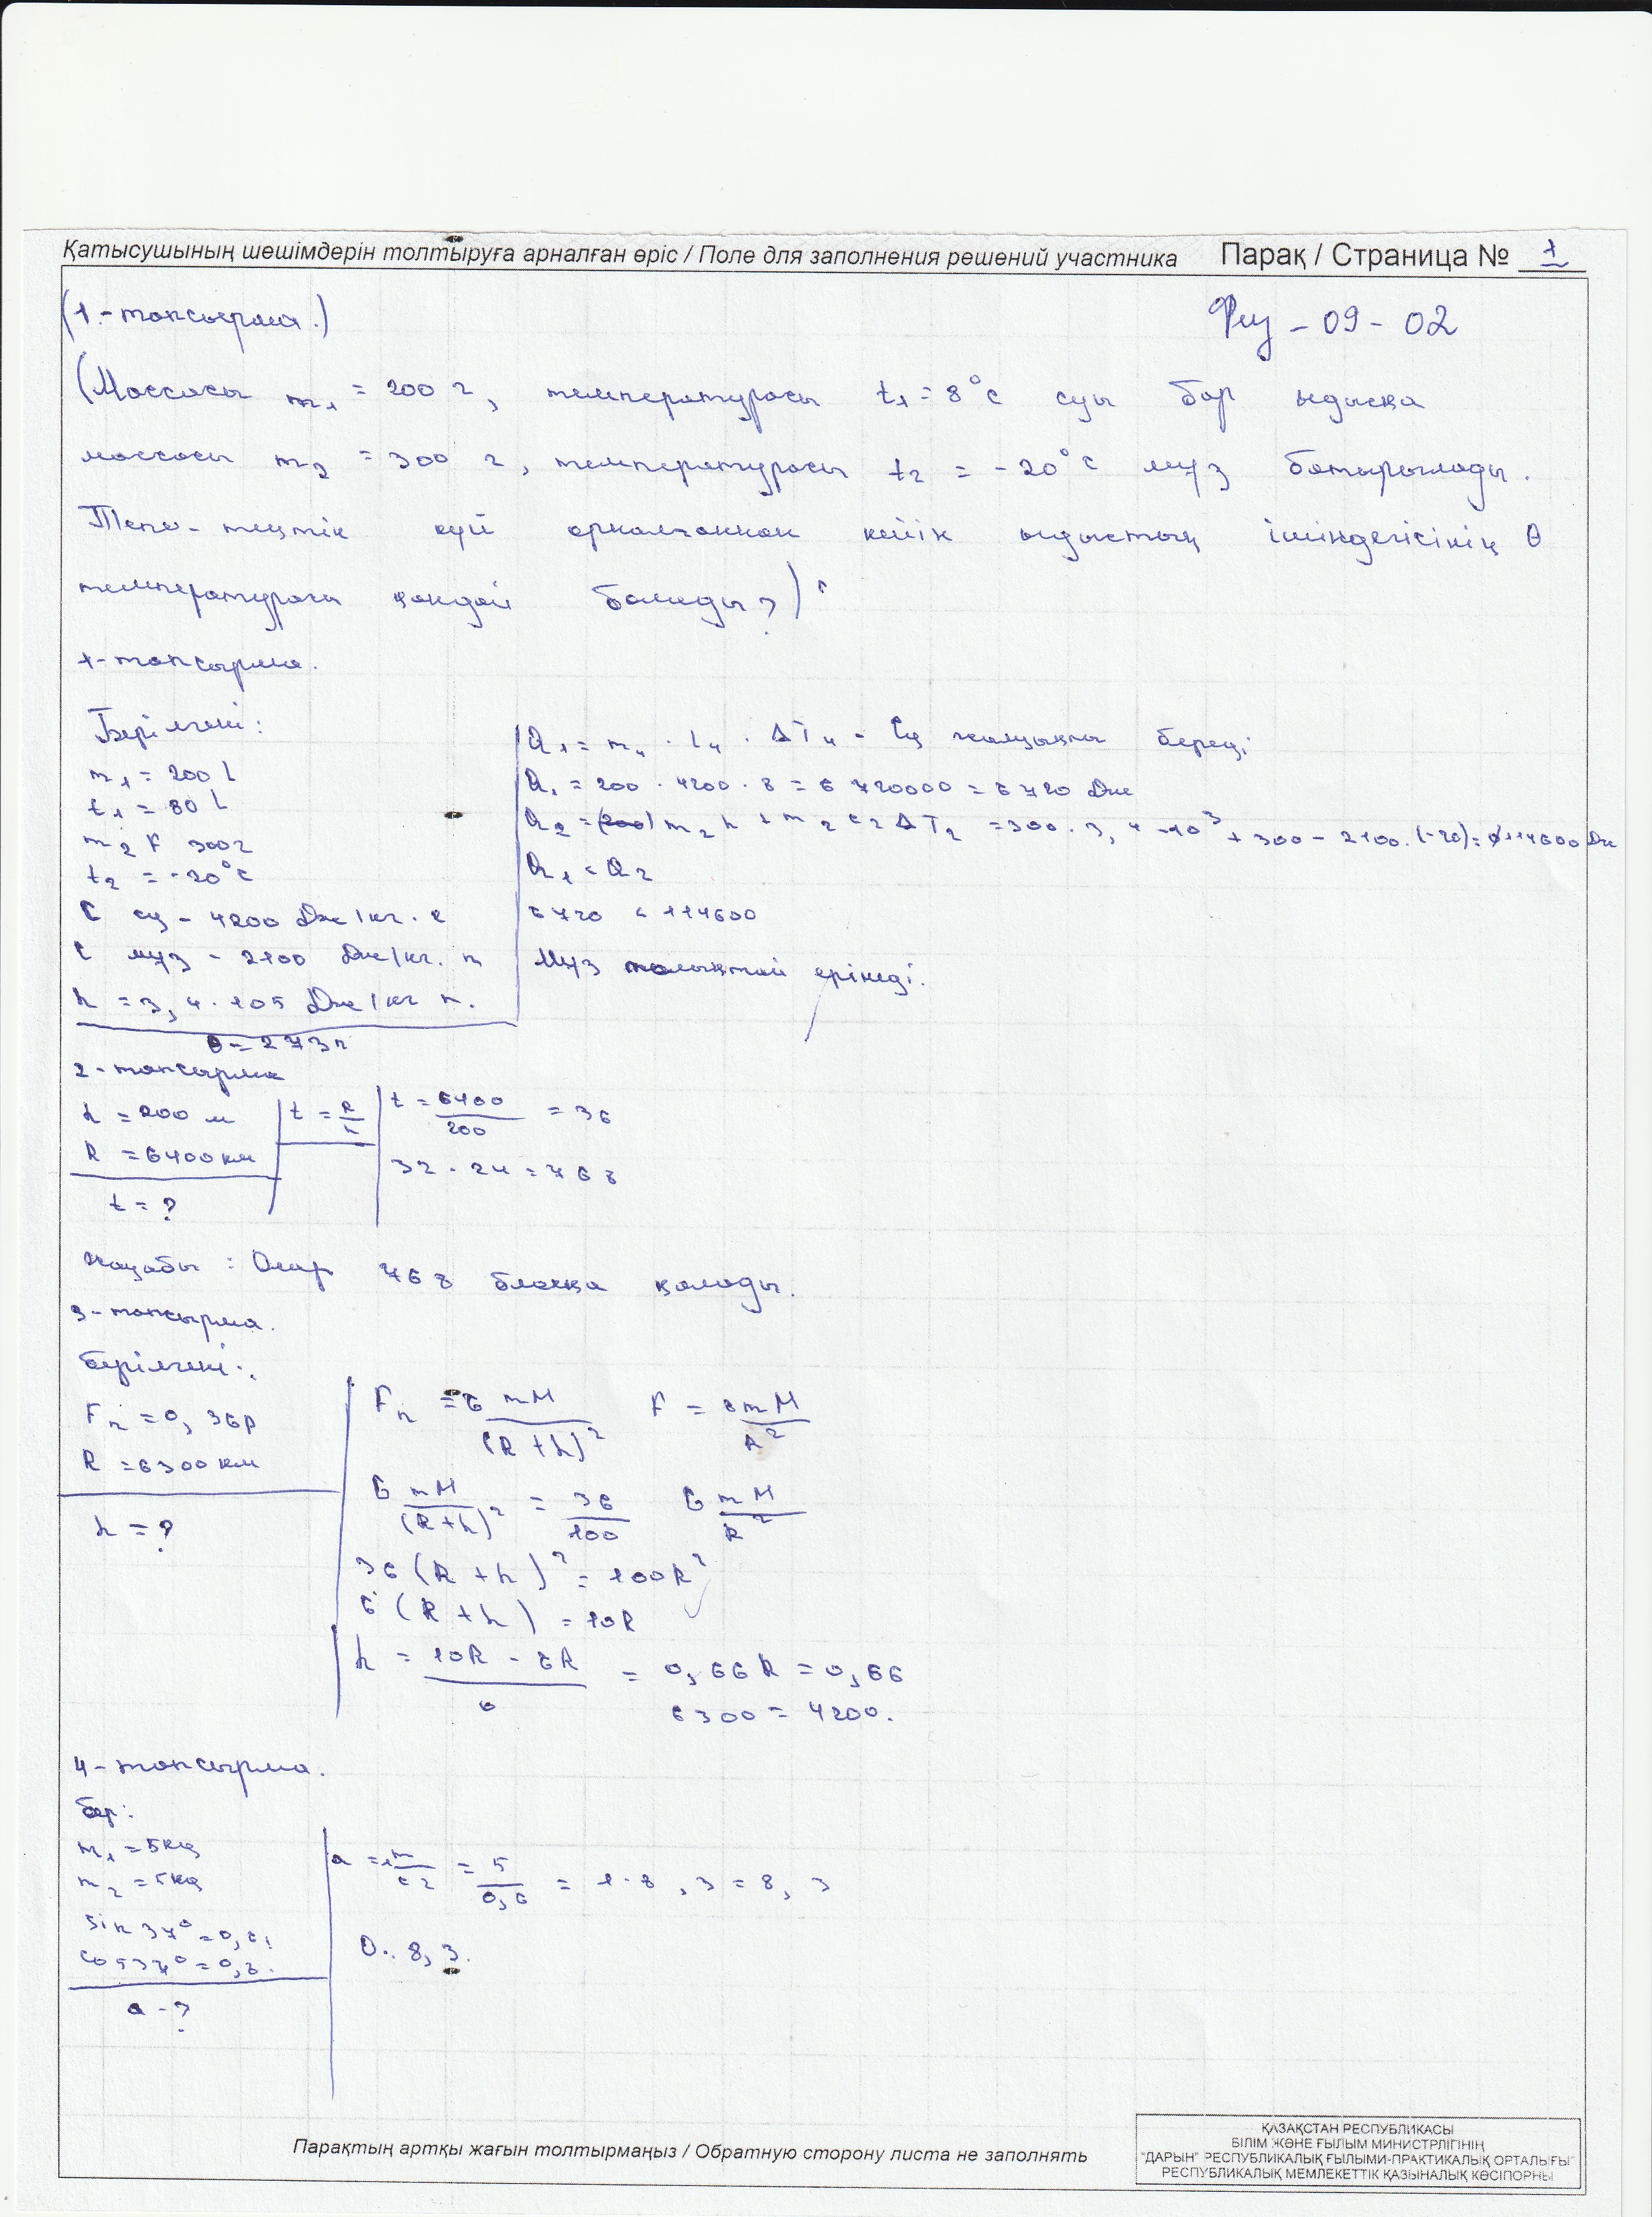 Қатысушының шешімдерін толтыруға арналған өріс / Поле для заполнения решений участника Парақ / Страница № 1
(1.-тапсырма.)
Физ - 09 - 02
(Массасы m₁ = 200 г, температурасы t₁ = 8°c суы бар ыдысқа
массасы m₂ = 300 г, температурасы t₂ = -20°c мұз батырылады.
Тепе-теңтік күй орналғаннан кейін ыдыстың ішіндегісінің θ
температурасы қандай болады?)
1-тапсырма.
Берілгені:
m₁ = 200
t₁ = 80
m₂ 300г
t₂ = -20°c
C су - 4200 Дж/кг.
C мұз - 2100 Дж/кг. к
λ = 3,4·105 Дж/кг к.
θ = 273к
Q₁ = m · ΔT береді
Q₁ = 200 · 4200 · 8 = 6720000 = 6720 Дж
Q₂ = (200) m₂ λ + m₂ c₂ ΔT₂ = 300·3,4·10³ + 300 - 2100·(-20) = 114600 Дж
Q₁ < Q₂
6720 < 114600
Мұз толықтай ерімеді.
2-тапсырма
h = 200 м
R = 6400 км
t = ?
t = R/h
t = 6400/200 = 36
32 · 24 = 768
Жауабы : Олар 768 блокқа қалады.
3-тапсырма.
Берілгені:
Fₙ = 0,36р
R = 6300 км
h = ?
Fₙ = G mM/(R+h)² F = GmM/R²
G mM/(R+h)² = 36/100 G mM/R²
36(R+h)² = 100R²
6(R+h) = 10R
h = (10R - 6R)/6 = 0,66R = 0,66
6300 = 4200.
4-тапсырма.
бер:
m₁ = 5кг
m₂ = 5кг
sin 37° = 0,6;
cos 37° = 0,8.
a - ?
a = = 5/0,6 = 1·8,3 = 8,3
О: 8,3.
Парақтың артқы жағын толтырмаңыз / Обратную сторону листа не заполнять
ҚАЗАҚСТАН РЕСПУБЛИКАСЫ
БІЛІМ ЖӘНЕ ҒЫЛЫМ МИНИСТРЛІГІНІҢ
"ДАРЫН" РЕСПУБЛИКАЛЫҚ ҒЫЛЫМИ-ПРАКТИКАЛЫҚ ОРТАЛЫҒЫ"
РЕСПУБЛИКАЛЫҚ МЕМЛЕКЕТТІК ҚАЗЫНАЛЫҚ КӘСІПОРНЫ